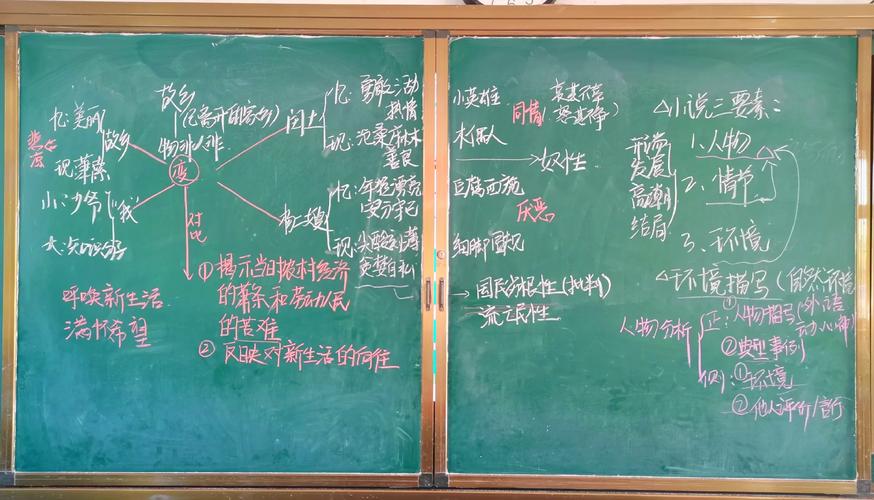 故乡
(已离开的家乡)
物非人非
变
忆:美丽
故乡
悲凉
现:萧索
小:少爷
"我"
闰土
忆:勇敢活动
热情
现:沧桑麻木
善良
杨二嫂
忆:年轻漂亮
安分守己
现:尖酸刻薄
自私
对比
①揭示当时农村经济
的萧条和劳动人民
的苦难
②反映对新生活的向往
呼唤新生活
满怀希望
小英雄
同情(哀其不幸
怒其不争)
木偶人
奴性
豆腐西施
厌恶
细脚圆规
→国民劣根性(批判)
流氓性
△小说三要素:
1.人物△
2.情节
开端
发展
高潮
结局
3.环境
△环境描写(自然环境
人物分析
正:①人物描写(外、语
动、心、神)
②典型事例
侧:①环境
②他人评价/言行